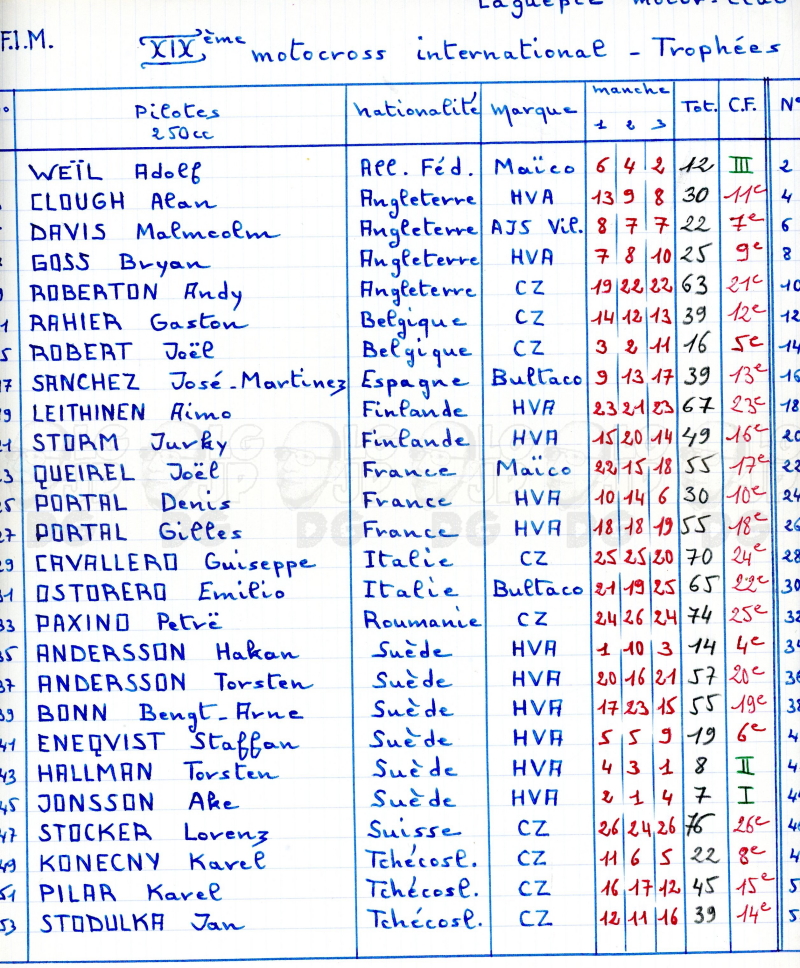 Laguépie motor-club
F.I.M. XIXème motocross international - Trophées
Pilotes 250cc nationalité marque manche 1 2 3 Tot. C.F. N°
WEÏL Adolf All. Féd. Maïco 6 4 2 12 III 2
CLOUGH Alan Angleterre HVA 13 9 8 30 11e 4
DAVIS Malmcolm Angleterre AJS Vil. 8 7 7 22 7e 6
GOSS Bryan Angleterre HVA 7 8 10 25 9e 8
ROBERTON Andy Angleterre CZ 19 22 22 63 21e 10
RAHIER Gaston Belgique CZ 14 12 13 39 12e 12
ROBERT Joël Belgique CZ 3 2 11 16 5e 14
17 SANCHEZ José-Martinez Espagne Bultaco 9 13 17 39 13e 16
19 LEITHINEN Aimo Finlande HVA 23 21 23 67 23e 18
21 STORM Jurky Finlande HVA 15 20 14 49 16e 20
23 QUEIREL Joël France Maïco 22 15 18 55 17e 22
25 PORTAL Denis France HVA 10 14 6 30 10e 24
27 PORTAL Gilles France HVA 18 18 19 55 18e 26
29 CAVALLERO Guiseppe Italie CZ 25 25 20 70 24e 28
31 OSTORERO Emilio Italie Bultaco 21 19 25 65 22e 30
33 PAXINO Petrë Roumanie CZ 24 26 24 74 25e 32
35 ANDERSSON Hakan Suède HVA 1 10 3 14 4e
37 ANDERSSON Torsten Suède HVA 20 16 21 57 20e
39 BONN Bengt-Arne Suède HVA 17 23 15 55 19e
41 ENEQVIST Staffan Suède HVA 5 5 9 19 6e
43 HALLMAN Torsten Suède HVA 4 3 1 8 II
45 JONSSON Ake Suède HVA 2 1 4 7 I
47 STOCKER Lorenz Suisse CZ 26 24 26 76 26e
49 KONECNY Karel Tchécosl. CZ 11 6 5 22 8e
51 PILAR Karel Tchécosl. CZ 16 17 12 45 15e
53 STODULKA Jan Tchécosl. CZ 12 11 16 39 14e